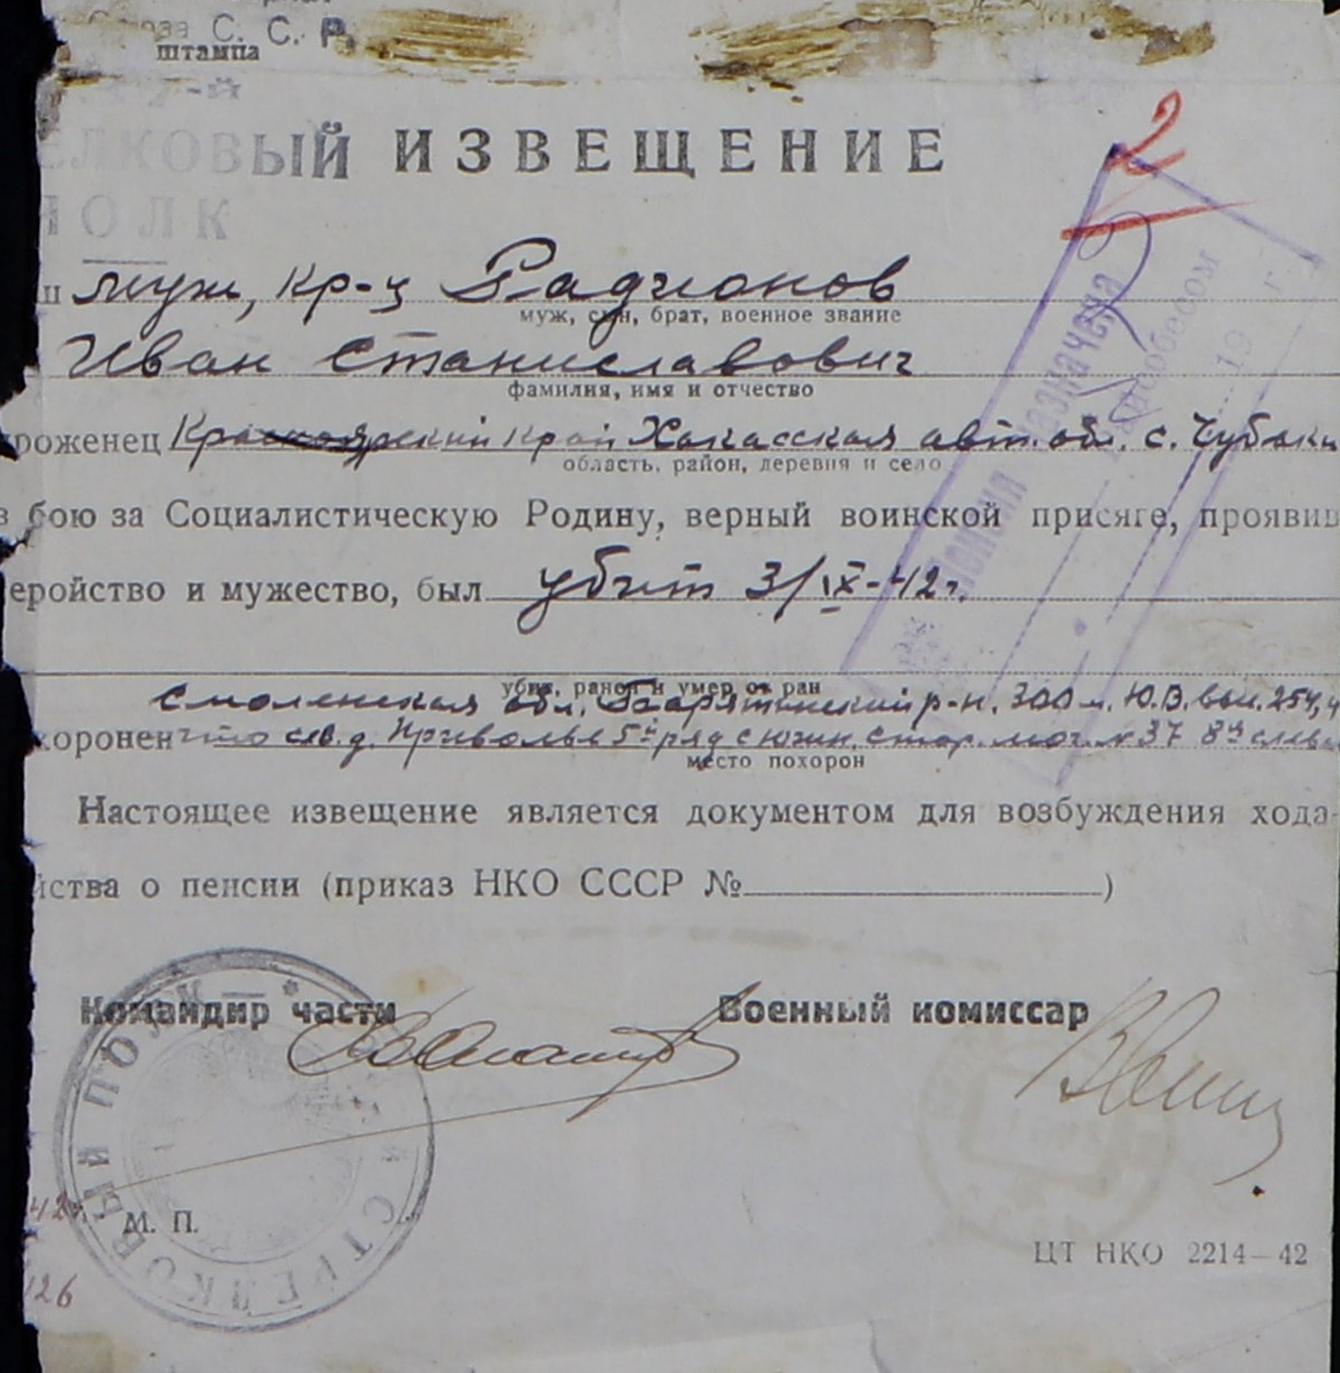 С. С. Р.
штампа
ЕЛКОВЫЙ ИЗВЕЩЕНИЕ
ПОЛК
2
ш муж, кр-ц Радионов
муж, сын, брат, военное звание
Иван Станиславович
фамилия, имя и отчество
роженец Красноярский край Хакасская авт. обл. с. Чубаки
область, район, деревня и село
в бою за Социалистическую Родину, верный воинской присяге, проявив
еройство и мужество, был убит 3/IX-42 г.
убит, ранен и умер от ран
Смоленская обл. Барятинский р-н. 300 м. Ю.В. выс. 254,
хоронен что сев. д. Приволье 5й ряд с южн. стор. мог. № 37 8й слева
место похорон
Настоящее извещение является документом для возбуждения хода-
йства о пенсии (приказ НКО СССР № )
Командир части Военный комиссар
М. П.
ЦТ НКО 2214—42
42г.
126
Пенсия назначена
19 г.
СТРЕЛКОВЫЙ ПОЛК